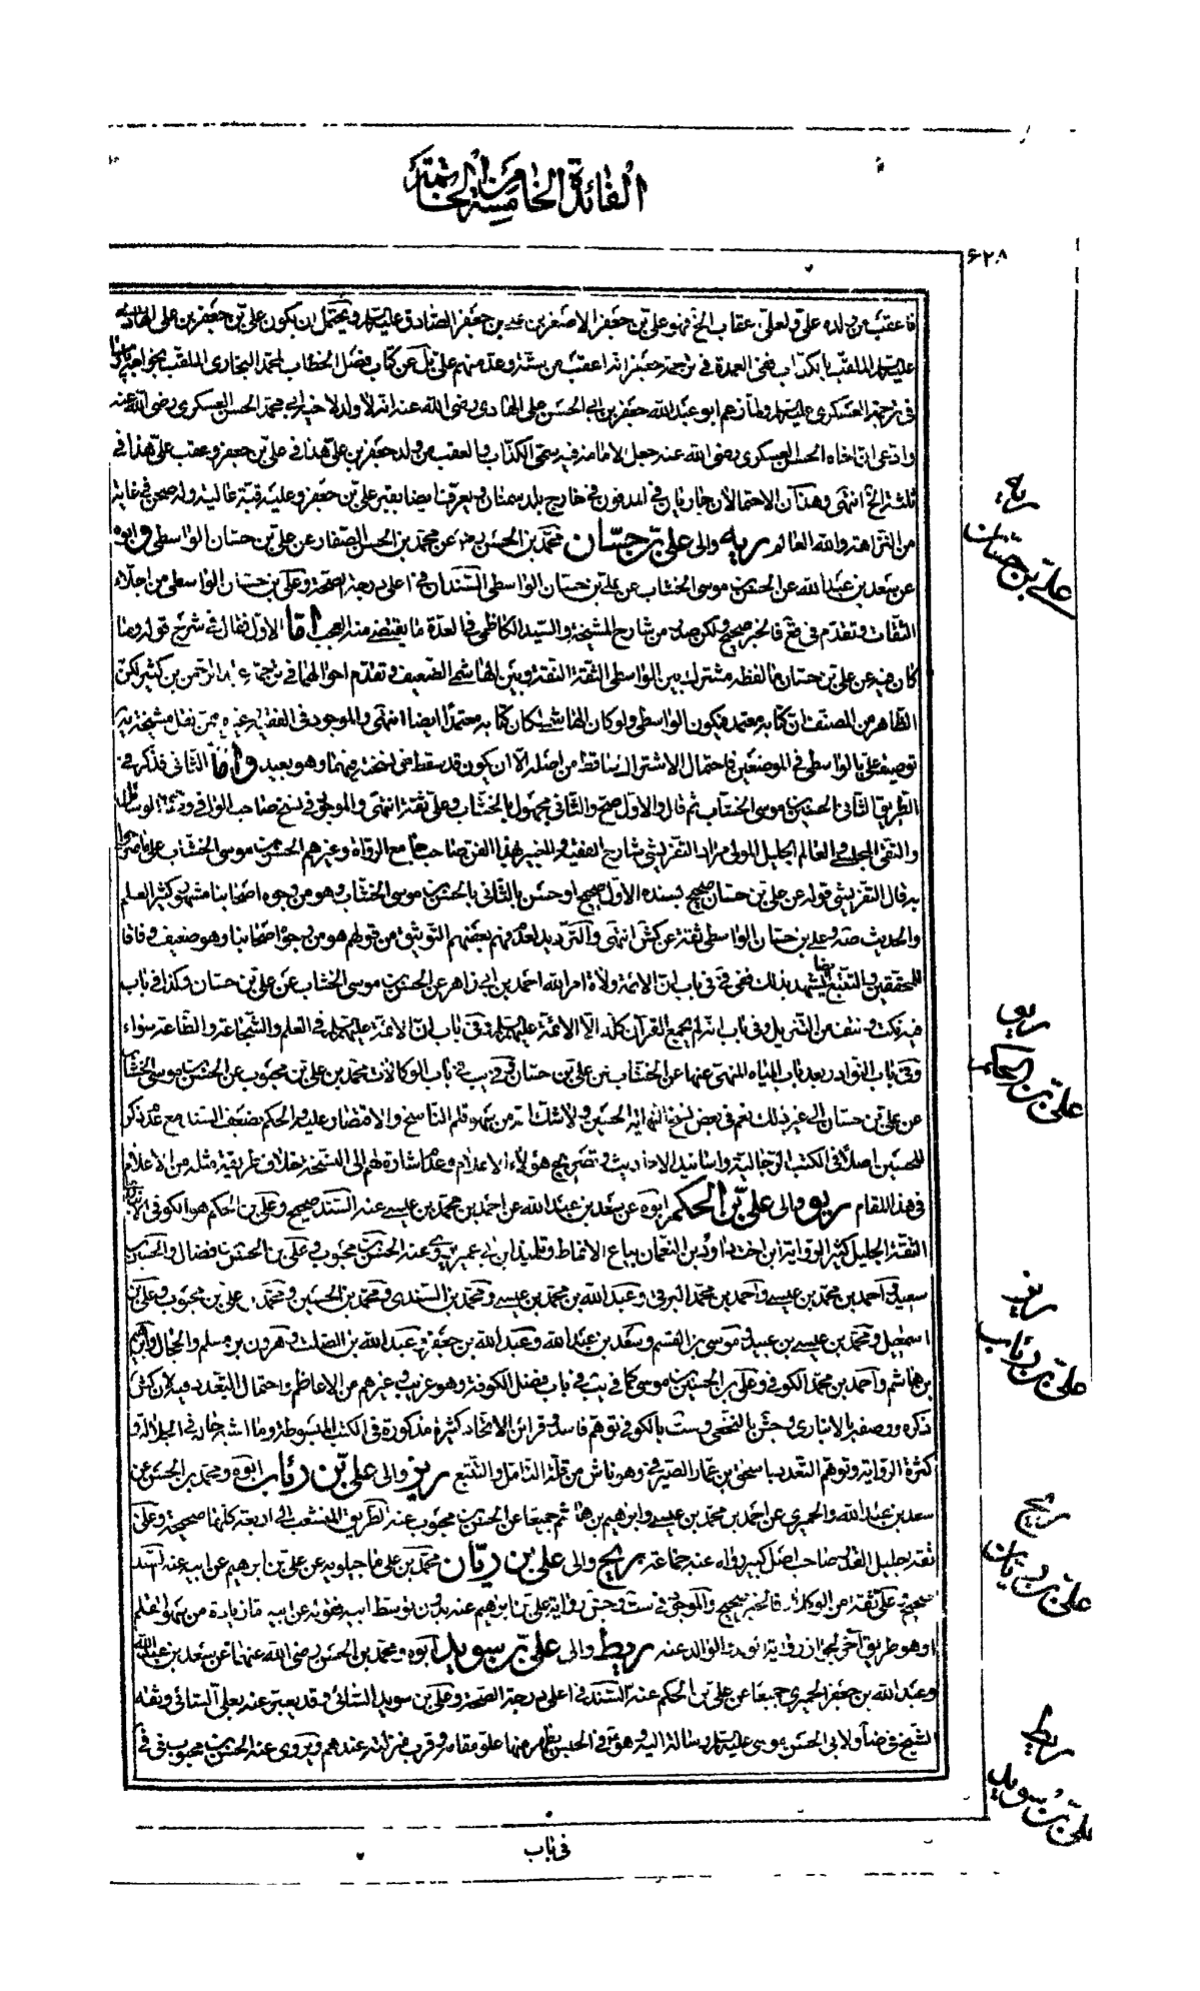 الفائدة الخامسة من الخاتمة
٦٢٨
فاعقب من ولده علي ولعلي عقاب الخ فهو علي بن جعفر الاصغر بن محمد بن جعفر الصادق عليه السلام ويحتمل ان يكون علي بن جعفر بن علي الهادي
عليه السلم الملقب بالكذاب ففي العمدة في ترجمة جعفر انه اعقب من ستة وعد منهم علي نقل عن كتاب فصل الخطاب لمحمد البخاري الملقب بخواجه پارسا
في ترجمة العسكري عليه السلم ولما زعم ابو عبد الله جعفر بن ابي الحسن علي الهادي رضي الله عنه انه لا ولد لاخيه ابي محمد الحسن العسكري رضي الله عنه
وادعى ان اخاه الحسن العسكري رضي الله عنه جعل الامامة فيه سمي الكذاب والعقب من ولد جعفر بن علي هذا في علي بن جعفر وعقب علي هذا في
ثلثة الخ انتهى وهذان الاحتمالان جاريان في المدفون في خارج بلد سمنان ويعرف ايضا بقبر علي بن جعفر وعليه قبة عالية وله صحن في غاية
من النزاهة والله العالم ريه والى علي بن حسان محمد بن الحسن رضه عن محمد بن الحسن الصفار عن علي بن حسان الواسطي وابوه
عن سعد بن عبد الله عن الحسن بن موسى الخشاب عن علي بن حسان الواسطي السندان في اعلى درجة الصحة وعلي بن حسان الواسطي من اجلاء
الثقات وتقدم في قع فالخبر صحيح ولكن صدر من شارح المشيخة والسيد الكاظمي في العدة ما يقتضي منه العجب اما الاول فقال في شرح قوله وما
كان فيه عن علي بن حسان ما لفظه مشترك بين الواسطي الثقة الثقة وبين الهاشمي الضعيف وتقدم احوالهما في ترجمة عبد الرحمن بن كثير لكن
الظاهر من المصنف ان كتابه معتمد فيكون الواسطي ولو كان الهاشمي لكان كتابه معتمدا ايضا انتهى والموجود في الفقيه وغيره ممن نقل مشيخته
توصيف علي بالواسطي في الموضعين فاحتمال الاشتراك ساقط من اصله الا ان يكون قد سقط في نسخته فيهما وهو بعيد واما الثاني فذكر في
الطريق الثاني الحسين بن موسى الخشاب ثم قال والاول صح والثاني مجهول بالخشاب وعلي ثقة انتهى والموجود في نسخ صاحب الوافي والوسائل
والتقي المجلسي والعالم الجليل المولى مراد التفريشي شارح الفقيه والخبير بهذا الفن صاحب جامع الرواة وغيرهم الحسن بن موسى الخشاب على ما صرحوا
به قال التفريشي قوله عن علي بن حسان صحيح بسنده الاول صحيح او حسن بالثاني بالحسن بن موسى الخشاب وهو من وجوه اصحابنا مشهور كثير العلم
والحديث صه وعلي بن حسان الواسطي ثقة عن كش انتهى والترديد لعدم فهم بعضهم التوثيق من قولهم هو من وجوه اصحابنا وهو ضعيف وفاقا
للمحققين والتتبع ايضا يشهد بذلك ففي في باب ان الائمة ولاة امر الله احمد بن ابي زاهر عن الحسن بن موسى الخشاب عن علي بن حسان وكذا في باب
فيه نكت ونتف من التنزيل وفي باب انه لم يجمع القرآن كله الا الائمة عليهم السلم وفي باب ان الائمة عليهم السلم في العلم والشجاعة والطاعة سواء
وفي باب النوادر بعد باب المياه المنهي عنها عن الخشاب عن علي بن حسان وفي يب في باب الوكالات محمد بن علي بن محبوب عن الحسن بن موسى الخشاب
عن علي بن حسان الى غير ذلك نعم في بعض نسخ النهاية الحسين ولا شك انه من سهو قلم الناسخ والاقتصار عليه والحكم بضعف السند مع عدم ذكر
للحسين اصلا في الكتب الرجالية واسانيد الاحاديث وتصريح هؤلاء الاعلام وعدم اشارة لهم الى النسخة خلاف طريقة مثله من الاعلام
في هذا المقام ريو والى علي بن الحكم ابوه عن سعد بن عبد الله عن احمد بن محمد بن عيسى عنه السند صحيح وعلي بن الحكم هو الكوفي الانباري
الثقة الجليل كثير الرواية ابن اخت داود بن النعمان بياع الانماط وتلميذ ابن ابي عمير يروي عنه الحسن بن محبوب وعلي بن الحسن بن فضال والحسين بن
سعيد واحمد بن محمد بن عيسى واحمد بن محمد البرقي وعبد الله بن محمد بن عيسى ومحمد بن السندي ومحمد بن الحسين ومحمد بن علي بن محبوب وعلي بن
اسمعيل ومحمد بن عيسى بن عبيد وموسى بن القسم وسعد بن عبد الله وعبد الله بن جعفر وعبد الله بن الصلت وهرون بن مسلم والخال وابراهيم
بن هاشم واحمد بن محمد الكوفي وعلي بن الحسين بن موسى كما في يب في باب فضل الكوفة وهو غريب وغيرهم من الاعاظم واحتمال التعدد فيه لان كش
ذكره ووصفه بالانباري وجش بالنخعي وست بالكوفي توهم فاسد وقرائن الاتحاد كثيرة مذكورة في الكتب المبسوطة وما اشبه حاله في الجلالة و
كثرة الرواية وتوهم التعدد باسحق بن عمار الصيرفي وهو ناش من قلة التأمل والتتبع ريز والى علي بن رئاب ابوه ومحمد بن الحسن عن
سعد بن عبد الله والحميري عن احمد بن محمد بن عيسى وابراهيم بن هاشم جميعا عن الحسن بن محبوب عنه الطريق المنشعب الى اربعة كلها صحيحة وعلي
ثقة جليل القدر صاحب اصل كبير رواه عنه جماعة ريح والى علي بن ريان محمد بن علي ماجيلويه عن علي بن ابرهيم عن ابيه عنه السند
صحيح علي ثقة من الوكلاء فالخبر صحيح والموجود في ست وجش رواية علي بن ابراهيم عنه بدون توسط ابيه فقوله عن ابيه ما زيادة من سهو القلم
او هو طريق آخر لجواز رواية الولد والوالد عنه ريط والى علي بن سويد ابوه ومحمد بن الحسن رضي الله عنهما عن سعد بن عبد الله
وعبد الله بن جعفر الحميري جميعا عن علي بن الحكم عنه السند في اعلى درجة الصحة وعلي بن سويد السائي وقد يعبر عنه بعلي السائي وثقه
الشيخ في ضا ولابي الحسن موسى عليه السلم رسالة اليه وهو في الحبس يظهر منها علو مقامه وقرب منزلته عندهم ويروي عنه الحسن بن محبوب في في
في باب
ريه
علي بن حسان
ريو
علي بن الحكم
ريز
علي بن رئاب
ريح
علي بن ريان
ريط
علي بن سويد